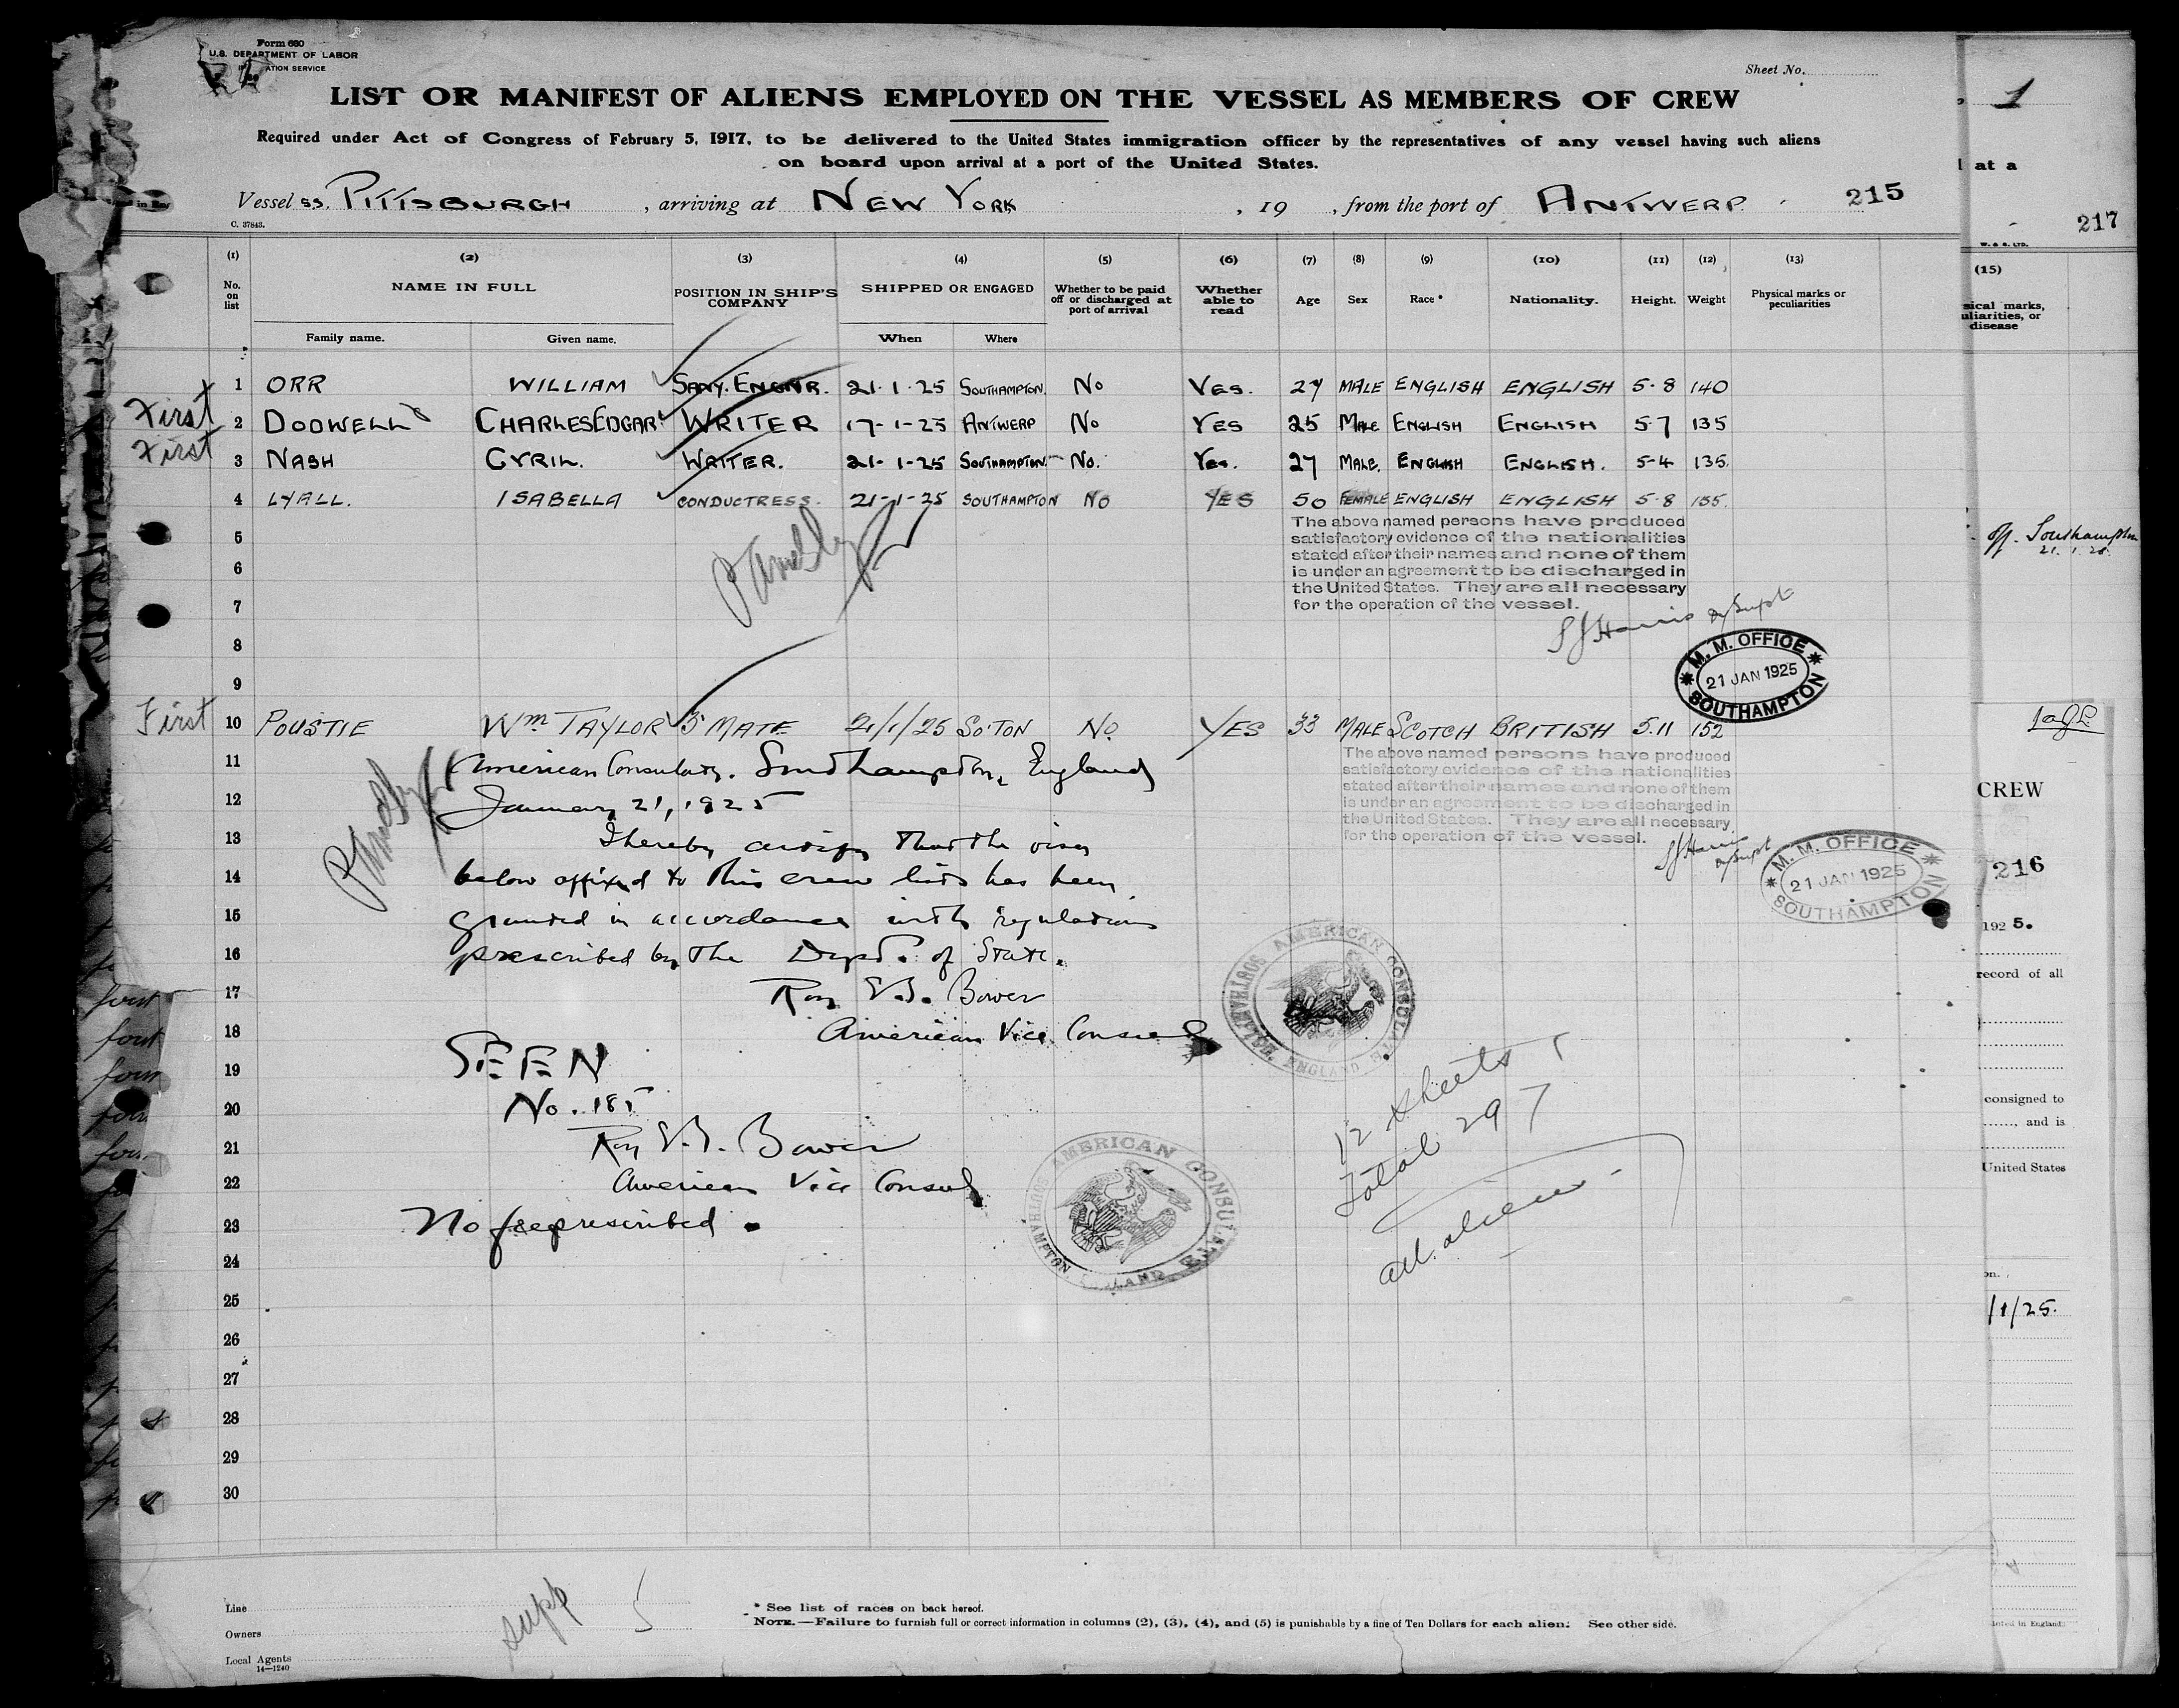 Form 680
U.S. DEPARTMENT OF LABOR
ATION SERVICE
Sheet No.
LIST OR MANIFEST OF ALIENS EMPLOYED ON THE VESSEL AS MEMBERS OF CREW
Required under Act of Congress of February 5, 1917, to be delivered to the United States immigration officer by the representatives of any vessel having such aliens
on board upon arrival at a port of the United States.
Vessel SS. PITTSBURGH, arriving at NEW YORK, 19 , from the port of ANTWERP. 215
C. 37843.
(1) (2) (3) (4) (5) (6) (7) (8) (9) (10) (11) (12) (13)
No. on list NAME IN FULL POSITION IN SHIP'S COMPANY SHIPPED OR ENGAGED Whether to be paid off or discharged at port of arrival Whether able to read Age Sex Race* Nationality. Height. Weight Physical marks or peculiarities
Family name. Given name. When Where
1 ORR WILLIAM SANY. ENGNR. 21·1·25 SOUTHAMPTON. NO YES. 27 MALE ENGLISH ENGLISH 5·8 140
First 2 DODWELL CHARLES EDGAR WRITER 17-1-25 ANTWERP NO YES 25 MALE ENGLISH ENGLISH 5·7 135
First 3 NASH CYRIL. WRITER. 21-1-25 SOUTHAMPTON. NO. YES. 27 MALE. ENGLISH ENGLISH. 5-4 135
4 LYALL. ISABELLA CONDUCTRESS. 21-1-25 SOUTHAMPTON NO YES 50 FEMALE ENGLISH ENGLISH 5·8 155.
5
6
7
The above named persons have produced
satisfactory evidence of the nationalities
stated after their names and none of them
is under an agreement to be discharged in
the United States. They are all necessary
for the operation of the vessel.
SJ Harris
M. M. OFFICE
21 JAN 1925
SOUTHAMPTON
8
9
First 10 POUSTIE Wm TAYLOR 3 MATE 21/1/25 SO'TON NO YES 33 MALE SCOTCH BRITISH 5.11 152
The above named persons have produced
satisfactory evidence of the nationalities
stated after their names and none of them
is under an agreement to be discharged in
the United States. They are all necessary
for the operation of the vessel.
SJ Harris
M. M. OFFICE
21 JAN 1925
SOUTHAMPTON
11 American Consulate. Southampton, England
12 January 21, 1925
13 I hereby certify that the visa
14 below affixed to this crew list has been
15 granted in accordance with regulations
16 prescribed by the Dept. of State.
17 Roy E. B. Bower
18 American Vice Consul
AMERICAN CONSULATE
SOUTHAMPTON, ENGLAND
19 SEEN
20 No. 185
21 Roy E. B. Bower
22 American Vice Consul
23 No fee prescribed.
AMERICAN CONSULATE
SOUTHAMPTON, ENGLAND
12 sheets
Total 297
all aliens
24
25
26
27
28
29
30
Line
Owners
Local Agents
14—1240
supp 5
* See list of races on back hereof.
NOTE.—Failure to furnish full or correct information in columns (2), (3), (4), and (5) is punishable by a fine of Ten Dollars for each alien. See other side.
1
at a
217
W. & S. LTD.
(15)
sical marks,
uliarities, or
disease
Southampton
CREW
216
192 5.
record of all
consigned to
, and is
United States
on.
/1/25.